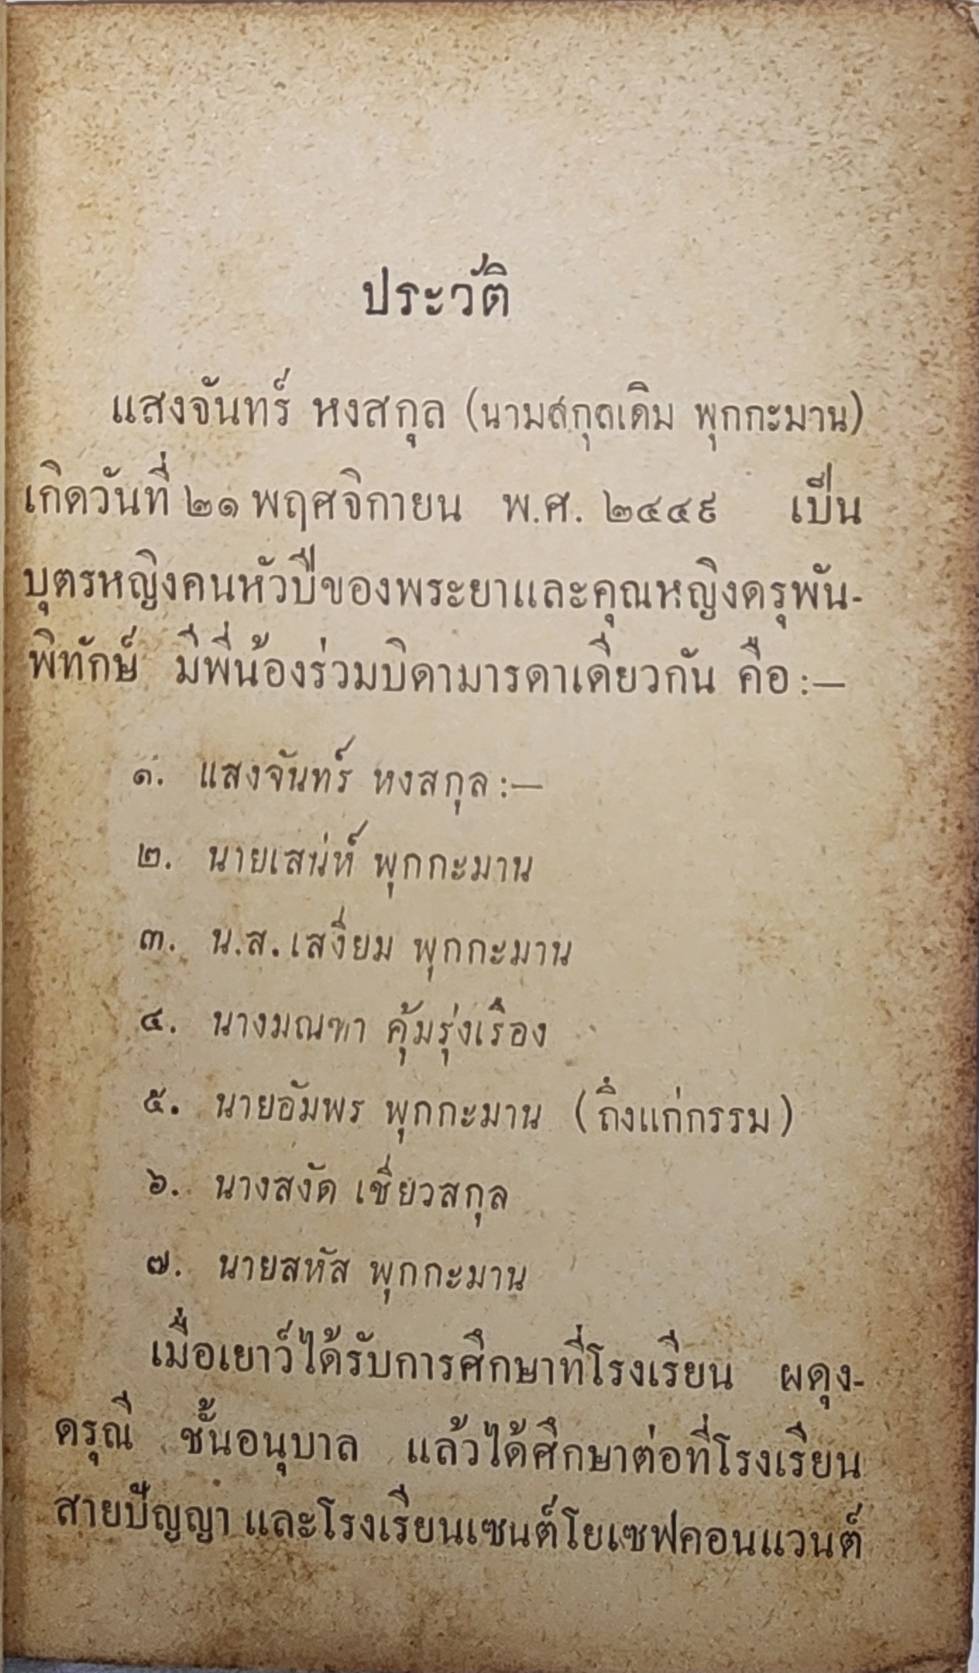 ประวัติ
แสงจันทร์ หงสกุล (นามสกุลเดิม พุกกะมาน)
เกิดวันที่ ๒๑ พฤศจิกายน พ.ศ. ๒๔๔๙ เป็น
บุตรหญิงคนหัวปีของพระยาและคุณหญิงดรุพัน-
พิทักษ์ มีพี่น้องร่วมบิดามารดาเดียวกัน คือ :—
๑. แสงจันทร์ หงสกุล :—
๒. นายเสน่ห์ พุกกะมาน
๓. น.ส. เสงี่ยม พุกกะมาน
๔. นางมณฑา คุ้มรุ่งเรือง
๕. นายอัมพร พุกกะมาน (ถึงแก่กรรม)
๖. นางสงัด เชี่ยวสกุล
๗. นายสหัส พุกกะมาน
เมื่อเยาว์ได้รับการศึกษาที่โรงเรียน ผดุง-
ดรุณี ชั้นอนุบาล แล้วได้ศึกษาต่อที่โรงเรียน
สายปัญญา และโรงเรียนเซนต์โยเซฟคอนแวนต์